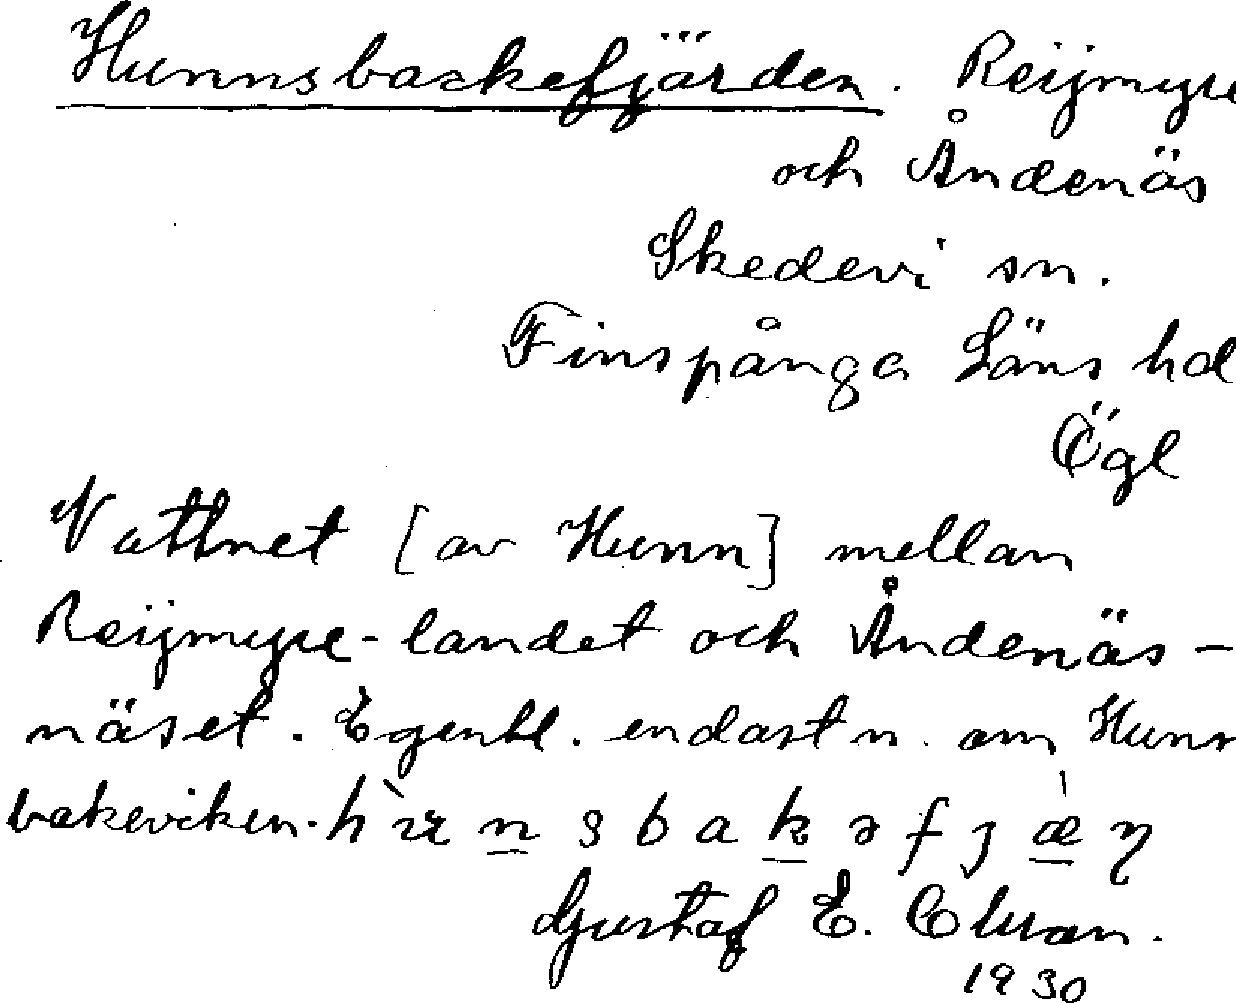 Hunnsbackefjärden. Reijmyre
och Ändenäs
Skedevi sn.
Finspånga Läns hd
Ögl
Vattnet [av Hunn] mellan
Reijmyre-landet och Åndenäs-
näset. Egentl. endast n. om Hunn
bakeviken.
Gustaf E.
1930